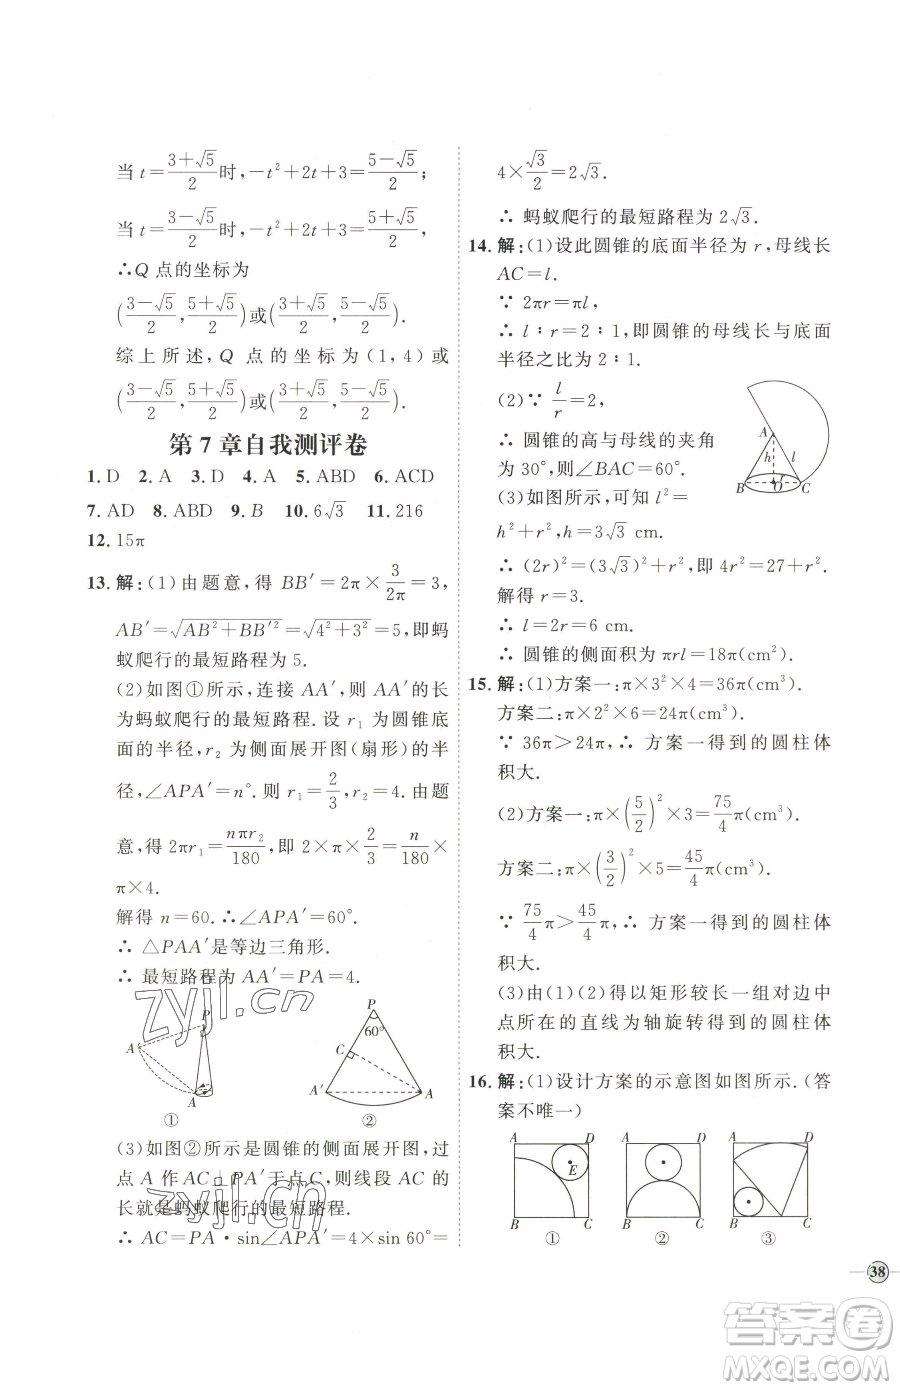 当 t=\frac{3+\sqrt{5}}{2}时,-t²+2t+3=\frac{5-\sqrt{5}}{2};
当 t=\frac{3-\sqrt{5}}{2}时,-t²+2t+3=\frac{5+\sqrt{5}}{2},
∴Q 点的坐标为
(\frac{3-\sqrt{5}}{2},\frac{5+\sqrt{5}}{2})或(\frac{3+\sqrt{5}}{2},\frac{5-\sqrt{5}}{2}).
综上所述,Q 点的坐标为(1,4)或
(\frac{3-\sqrt{5}}{2},\frac{5+\sqrt{5}}{2})或(\frac{3+\sqrt{5}}{2},\frac{5-\sqrt{5}}{2}).
第 7 章自我测评卷
1. D 2. A 3. D 4. A 5. ABD 6. ACD
7. AD 8. ABD 9. B 10. 6\sqrt{3} 11. 216
12. 15π
13. 解:(1)由题意,得 BB′=2π×\frac{3}{2π}=3,
AB′=\sqrt{AB²+BB′²}=\sqrt{4²+3²}=5,即蚂
蚁爬行的最短路程为 5.
(2)如图①所示,连接 AA′,则 AA′的长
为蚂蚁爬行的最短路程.设 r₁ 为圆锥底
面的半径,r₂ 为侧面展开图(扇形)的半
径,∠APA′=n°.则 r₁=\frac{2}{3},r₂=4.由题
意,得 2πr₁=\frac{nπr₂}{180},即 2×π×\frac{2}{3}=\frac{n}{180}×
π×4.
解得 n=60.∴∠APA′=60°.
∴ △PAA′是等边三角形.
∴ 最短路程为 AA′=PA=4.
zyjl.cn
P
A′
A
①
P
60°
C
A′
A
②
(3)如图②所示是圆锥的侧面展开图,过
点 A 作 AC⊥PA′于点 C,则线段 AC 的
长就是蚂蚁爬行的最短路程.
zyjl.cn
∴ AC=PA·sin∠APA′=4×sin 60°=
4×\frac{\sqrt{3}}{2}=2\sqrt{3}.
∴ 蚂蚁爬行的最短路程为 2\sqrt{3}.
14. 解:(1)设此圆锥的底面半径为 r,母线长
AC=l.
∵ 2πr=πl,
∴ l∶r=2∶1,即圆锥的母线长与底面
半径之比为 2∶1.
(2)∵ \frac{l}{r}=2,
∴ 圆锥的高与母线的夹角
为 30°,则∠BAC=60°.
(3)如图所示,可知 l²=
h²+r²,h=3\sqrt{3} cm.
A
h
l
B
O
r
C
∴ (2r)²=(3\sqrt{3})²+r²,即 4r²=27+r².
解得 r=3.
∴ l=2r=6 cm.
∴ 圆锥的侧面积为 πrl=18π(cm²).
15. 解:(1)方案一:π×3²×4=36π(cm³).
方案二:π×2²×6=24π(cm³).
∵ 36π>24π,∴ 方案一得到的圆柱体
积大.
(2)方案一:π×(\frac{5}{2})²×3=\frac{75}{4}π(cm³).
方案二:π×(\frac{3}{2})²×5=\frac{45}{4}π(cm³).
∵ \frac{75}{4}π>\frac{45}{4}π,∴ 方案一得到的圆柱体
积大.
(3)由(1)(2)得以矩形较长一组对边中
点所在的直线为轴旋转得到的圆柱体
积大.
16. 解:(1)设计方案的示意图如图所示.(答
案不唯一)
A
D
E
B
C
①
A
D
B
C
②
A
D
B
C
③
38
答案圈
MXQE.COM